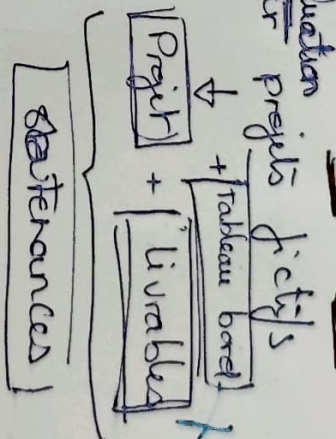 uation
ir projets fictifs
↓ + Tableau bord
Projet + livrables
soutenances